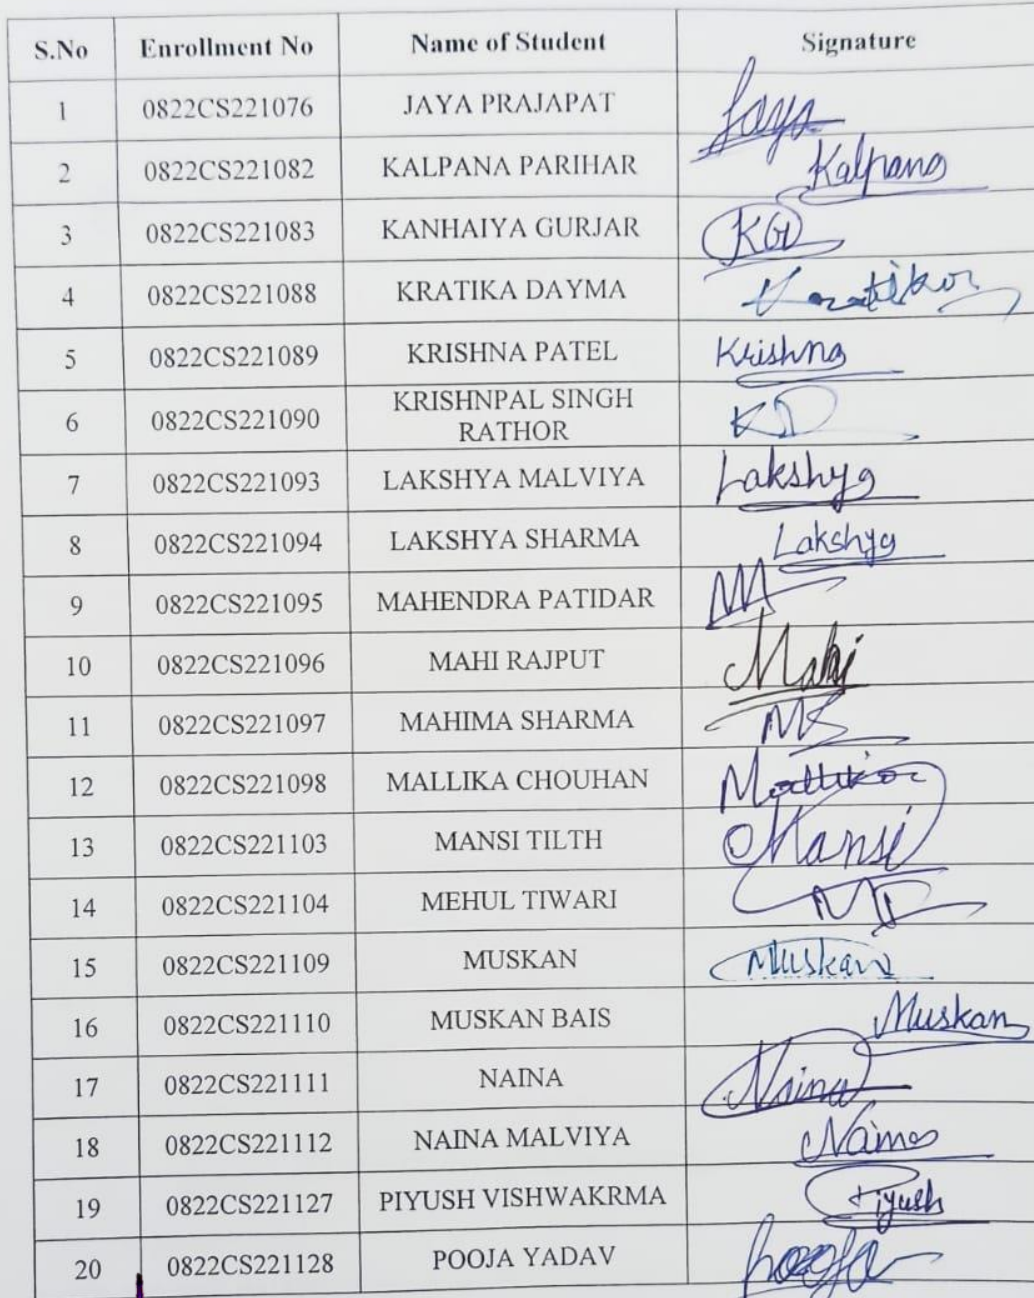 S.No Enrollment No Name of Student Signature
1 0822CS221076 JAYA PRAJAPAT Jaya
2 0822CS221082 KALPANA PARIHAR Kalpana
3 0822CS221083 KANHAIYA GURJAR KG
4 0822CS221088 KRATIKA DAYMA
5 0822CS221089 KRISHNA PATEL Krishna
6 0822CS221090 KRISHNPAL SINGH
RATHOR
7 0822CS221093 LAKSHYA MALVIYA Lakshya
8 0822CS221094 LAKSHYA SHARMA Lakshya
9 0822CS221095 MAHENDRA PATIDAR
10 0822CS221096 MAHI RAJPUT Mahi
11 0822CS221097 MAHIMA SHARMA MS
12 0822CS221098 MALLIKA CHOUHAN
13 0822CS221103 MANSI TILTH Mansi
14 0822CS221104 MEHUL TIWARI MT
15 0822CS221109 MUSKAN Muskan
16 0822CS221110 MUSKAN BAIS Muskan
17 0822CS221111 NAINA Naina
18 0822CS221112 NAINA MALVIYA Naina
19 0822CS221127 PIYUSH VISHWAKRMA Piyush
20 0822CS221128 POOJA YADAV Pooja